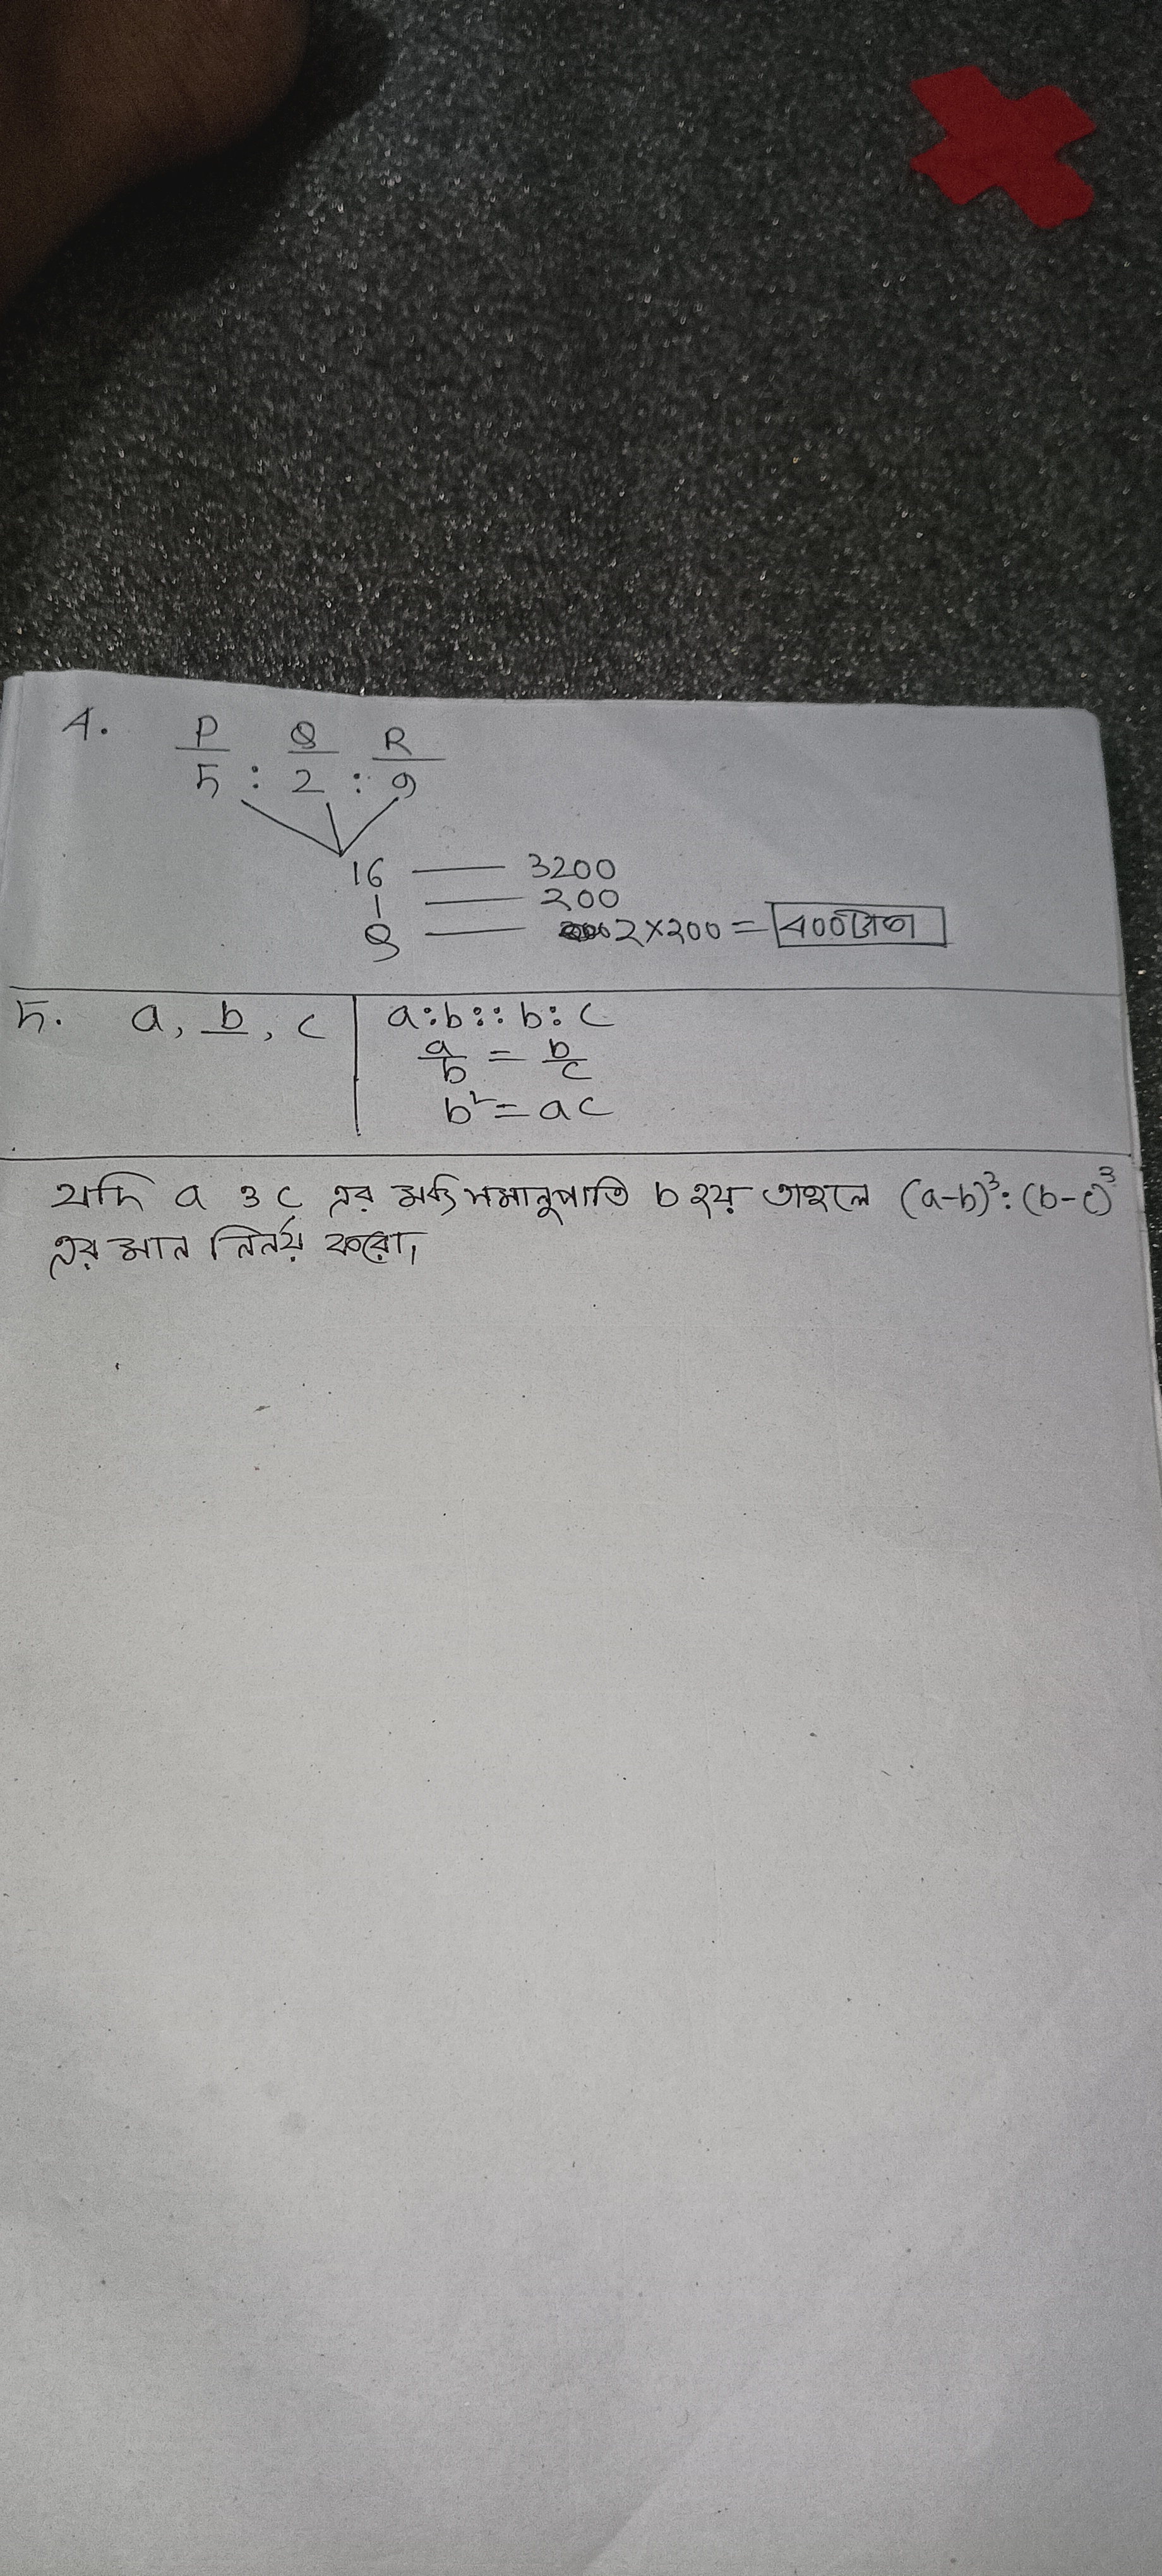 4. P Q R
5 : 2 : 9
16 — 3200
1 — 200
Q — 2×200 = 400টাকা
5. a, b, c
a:b::b:c
a/b = b/c
b² = ac
যদি a ও c এর মধ্য সমানুপাতি b হয় তাহলে (a-b)³:(b-c)³
এর মান নির্নয় করো।